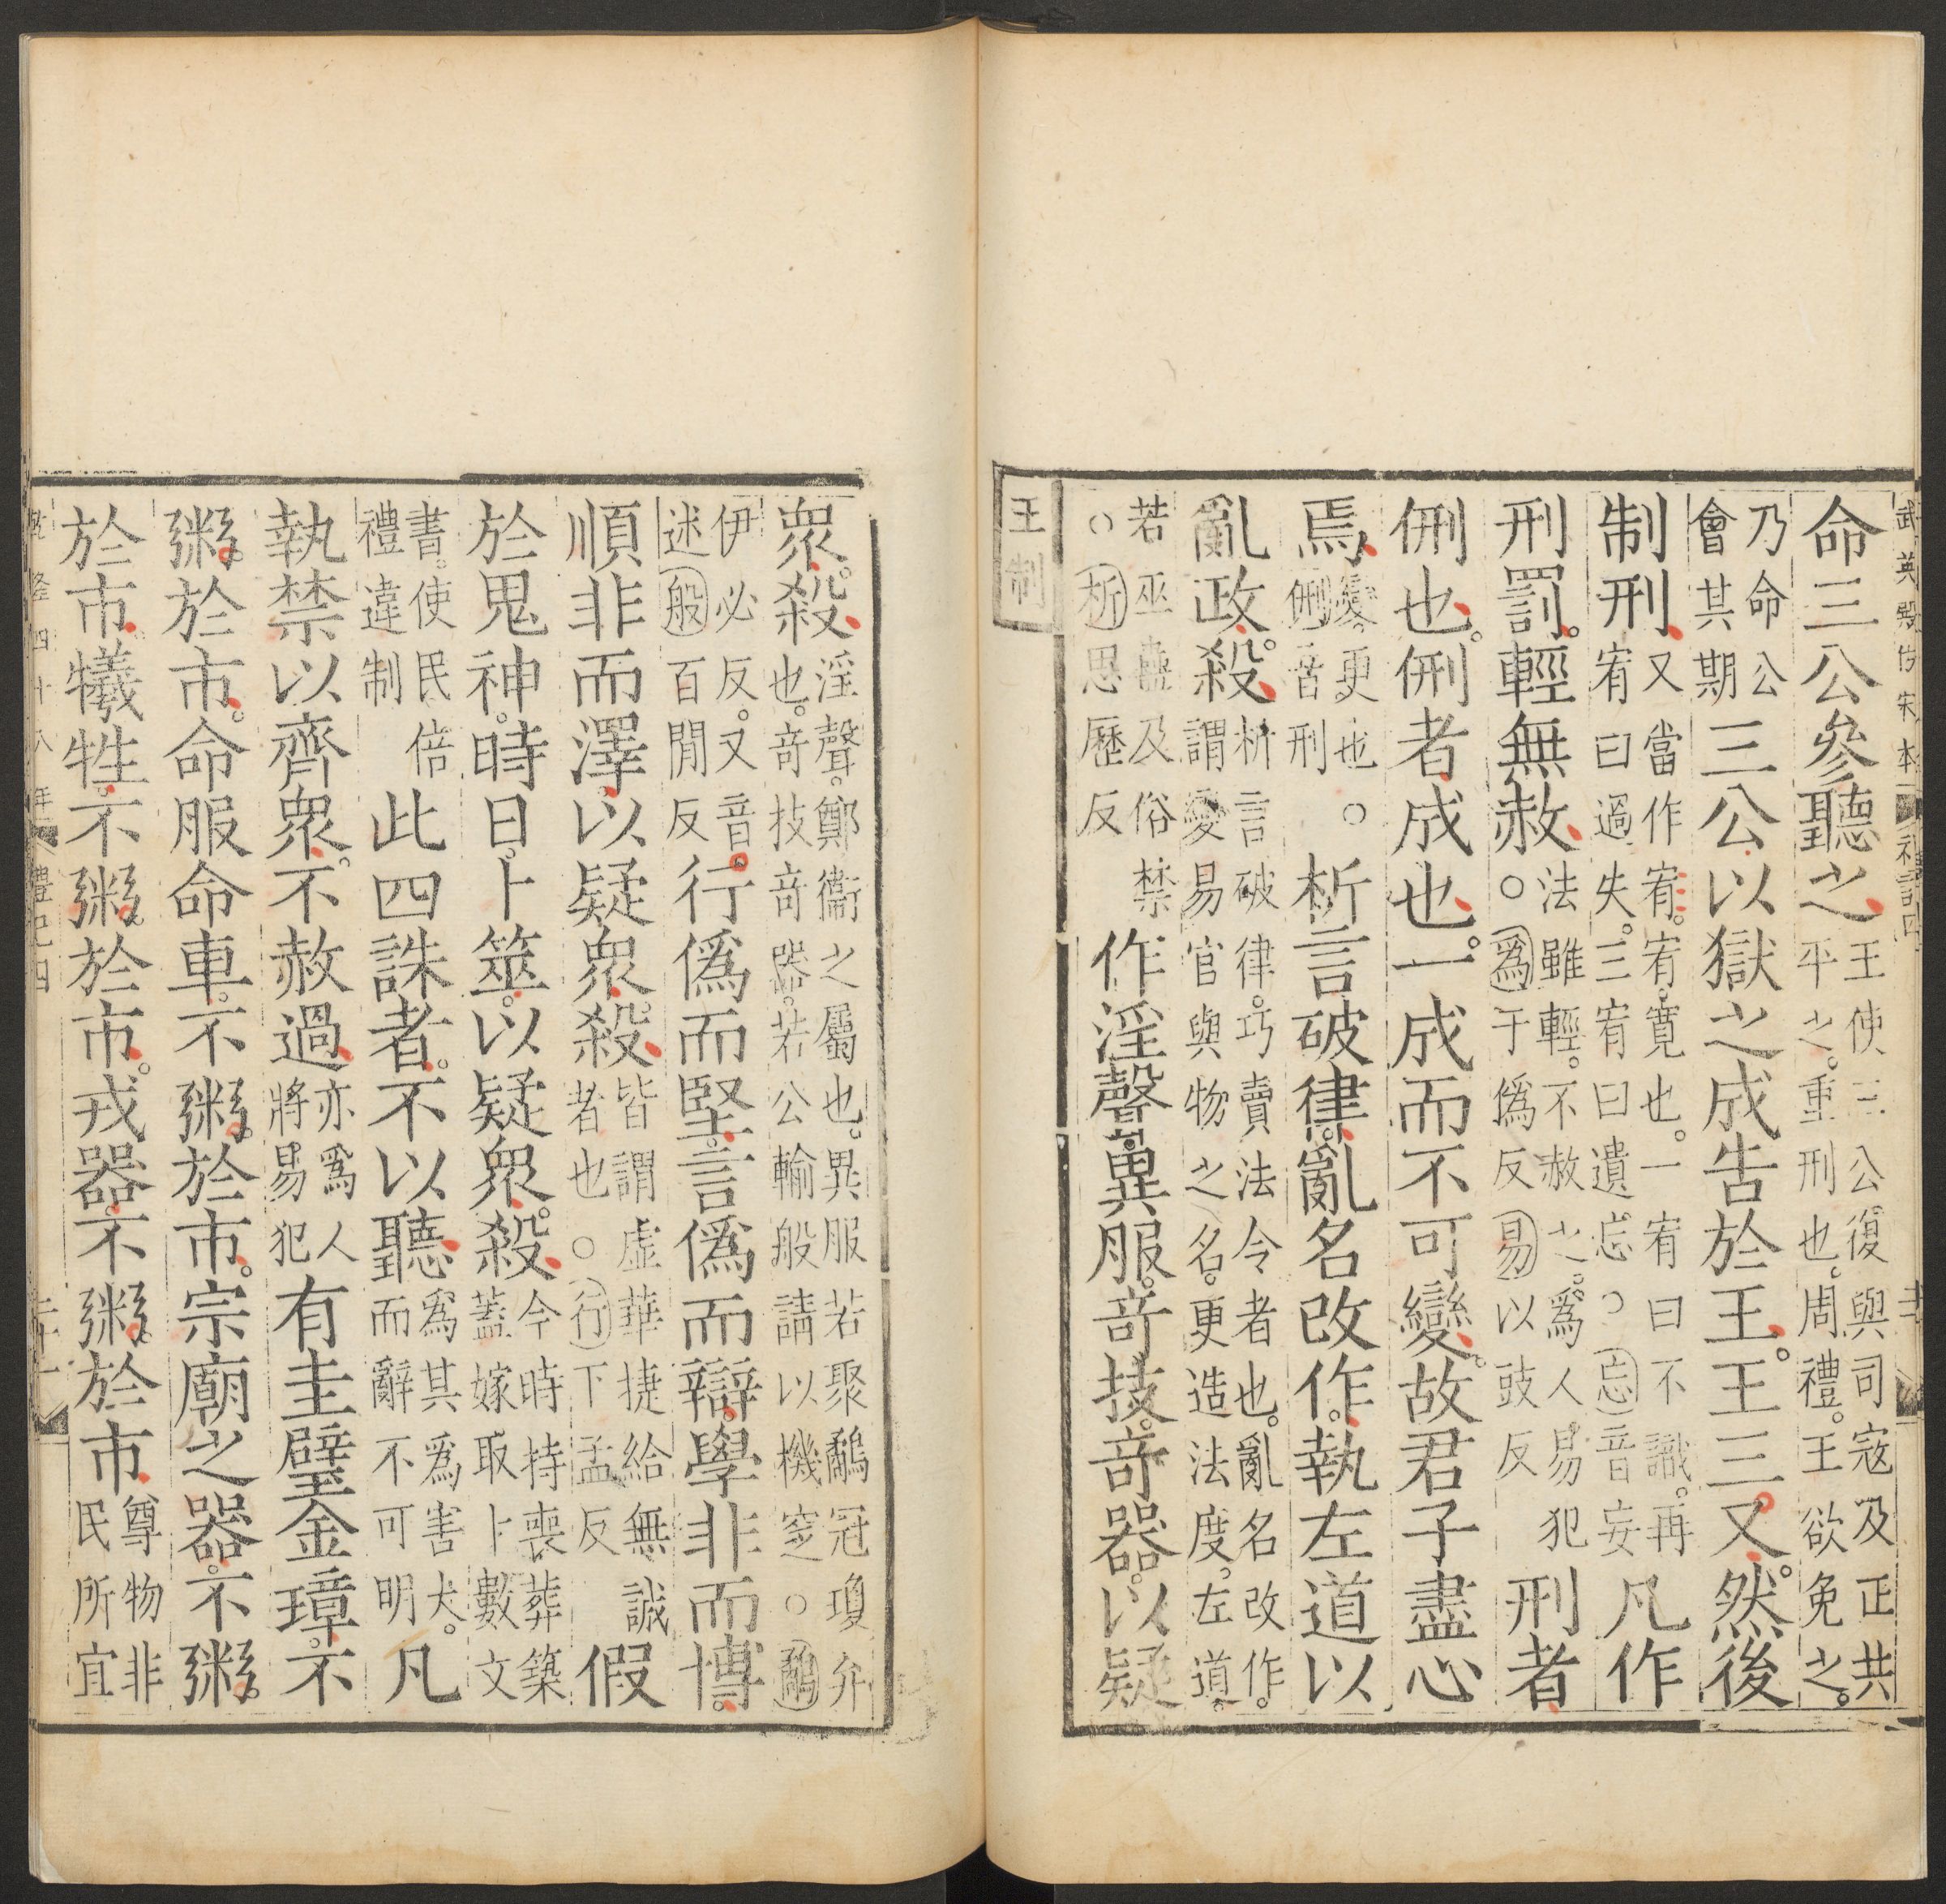 武英殿仿宋本 禮記四
命三公參聽之王使三公復與司寇及正共平之。重刑也。周禮。王欲免之。
乃命公會其期三公以獄之成告於王。王三又。然後
制刑又當作宥。宥。寬也。一宥曰不識。再宥曰過失。三宥曰遺忘○忘音妄凡作
刑罰。輕無赦法雖輕。不赦之。爲人易犯○爲于僞反易以豉反刑者
侀也。侀者成也。一成而不可變。故君子盡心
焉變。更也。○侀音刑析言破律。亂名改作。執左道以
亂政。殺析言破律。巧賣法令者也。亂名改作。謂變易官與物之名。更造法度。左道。
若巫蠱及俗禁○析思歷反作淫聲異服。奇技。奇器。以疑
王制
眾。殺淫聲。鄭衞之屬也。異服若聚鷸冠瓊弁也。奇技奇器。若公輸般請以機窆○鷸
伊必反。又音述般百閒反行僞而堅。言僞而辯。學非而博。
順非而澤。以疑眾。殺皆謂虛華捷給無誠者也○行下孟反假
於鬼神。時日。卜筮。以疑眾。殺今時持喪葬築蓋嫁取卜數文
書。使民倍禮違制此四誅者。不以聽爲其爲害大。而辭不可明凡
執禁以齊眾。不赦過亦爲人將易犯有圭璧金璋。不
粥。於市。命服命車。不粥。於市。宗廟之器。不粥。
於市犧牲。不粥。於市。戎器。不粥。於市尊物非民所宜
乾隆四十八年 禮記四 二十一